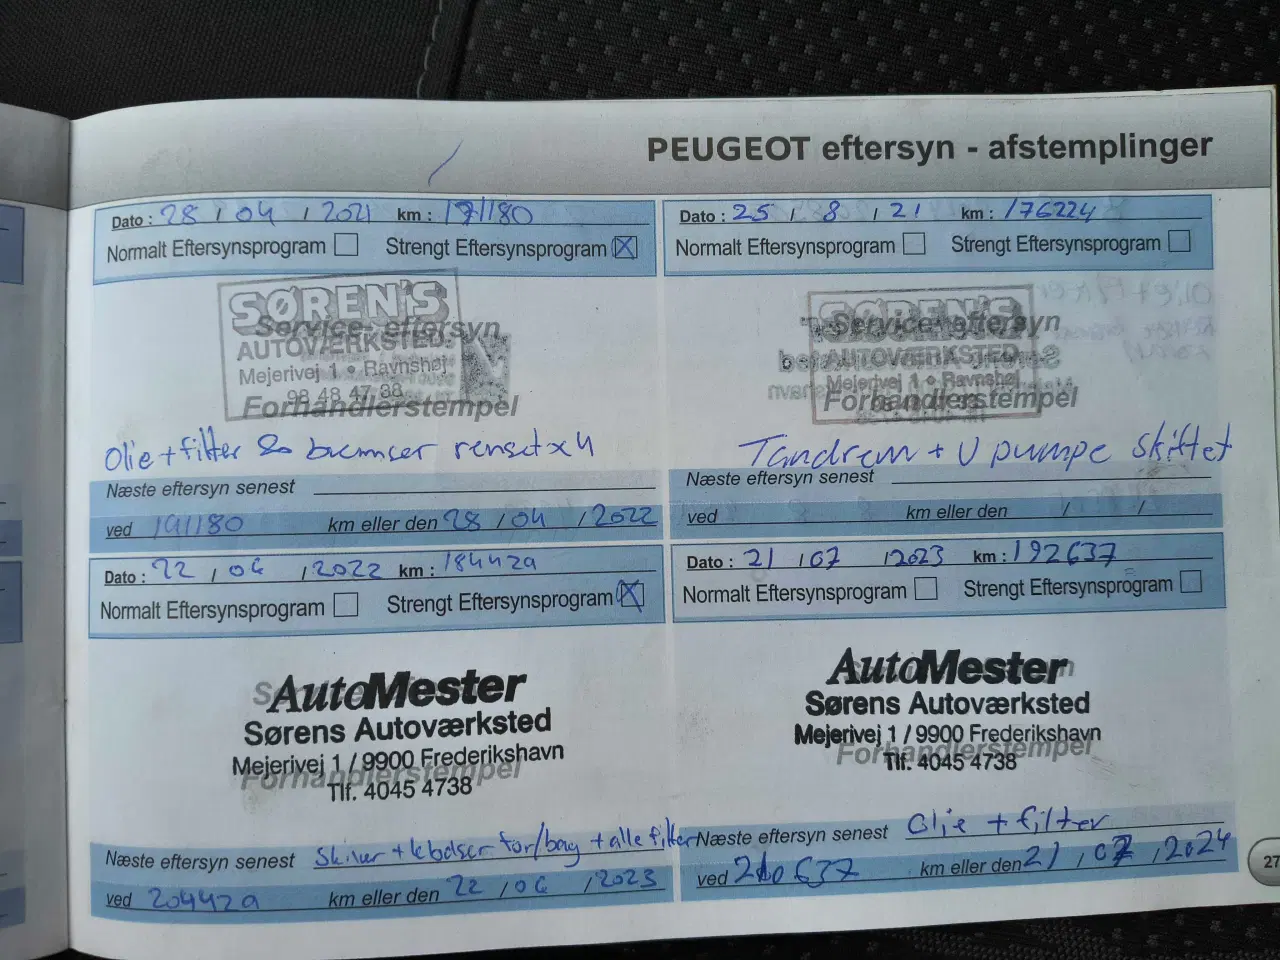 PEUGEOT eftersyn - afstemplinger
Dato : 28 / 04 / 2021 km : 171180
Normalt Eftersynsprogram Strengt Eftersynsprogram X
SØREN'S
Service-eftersyn
AUTOVÆRKSTED
Mejerivej 1 • Ravnshøj
98 48 47 38
Forhandlerstempel
Olie + filter & bremser renset x 4
Næste eftersyn senest
ved 191180 km eller den 28 / 04 / 2022
Dato : 25 / 8 / 21 km : 176224
Normalt Eftersynsprogram Strengt Eftersynsprogram
SØREN'S
Service-eftersyn
AUTOVÆRKSTED
Mejerivej 1 • Ravnshøj
Forhandlerstempel
Tandrem + V pumpe skiftet
Næste eftersyn senest
ved km eller den / /
Dato : 22 / 06 / 2022 km : 184429
Normalt Eftersynsprogram Strengt Eftersynsprogram X
AutoMester
Sørens Autoværksted
Mejerivej 1 / 9900 Frederikshavn
Forhandlerstempel
Tlf. 4045 4738
Næste eftersyn senest Skiver + klodser for/bag + alle filter
ved 204429 km eller den 22 / 06 / 2023
Dato : 21 / 07 / 2023 km : 192637
Normalt Eftersynsprogram Strengt Eftersynsprogram
AutoMester
Sørens Autoværksted
Mejerivej 1 / 9900 Frederikshavn
Forhandlerstempel
Tlf. 4045 4738
Næste eftersyn senest Olie + filter
ved 210637 km eller den 21 / 07 / 2024
27